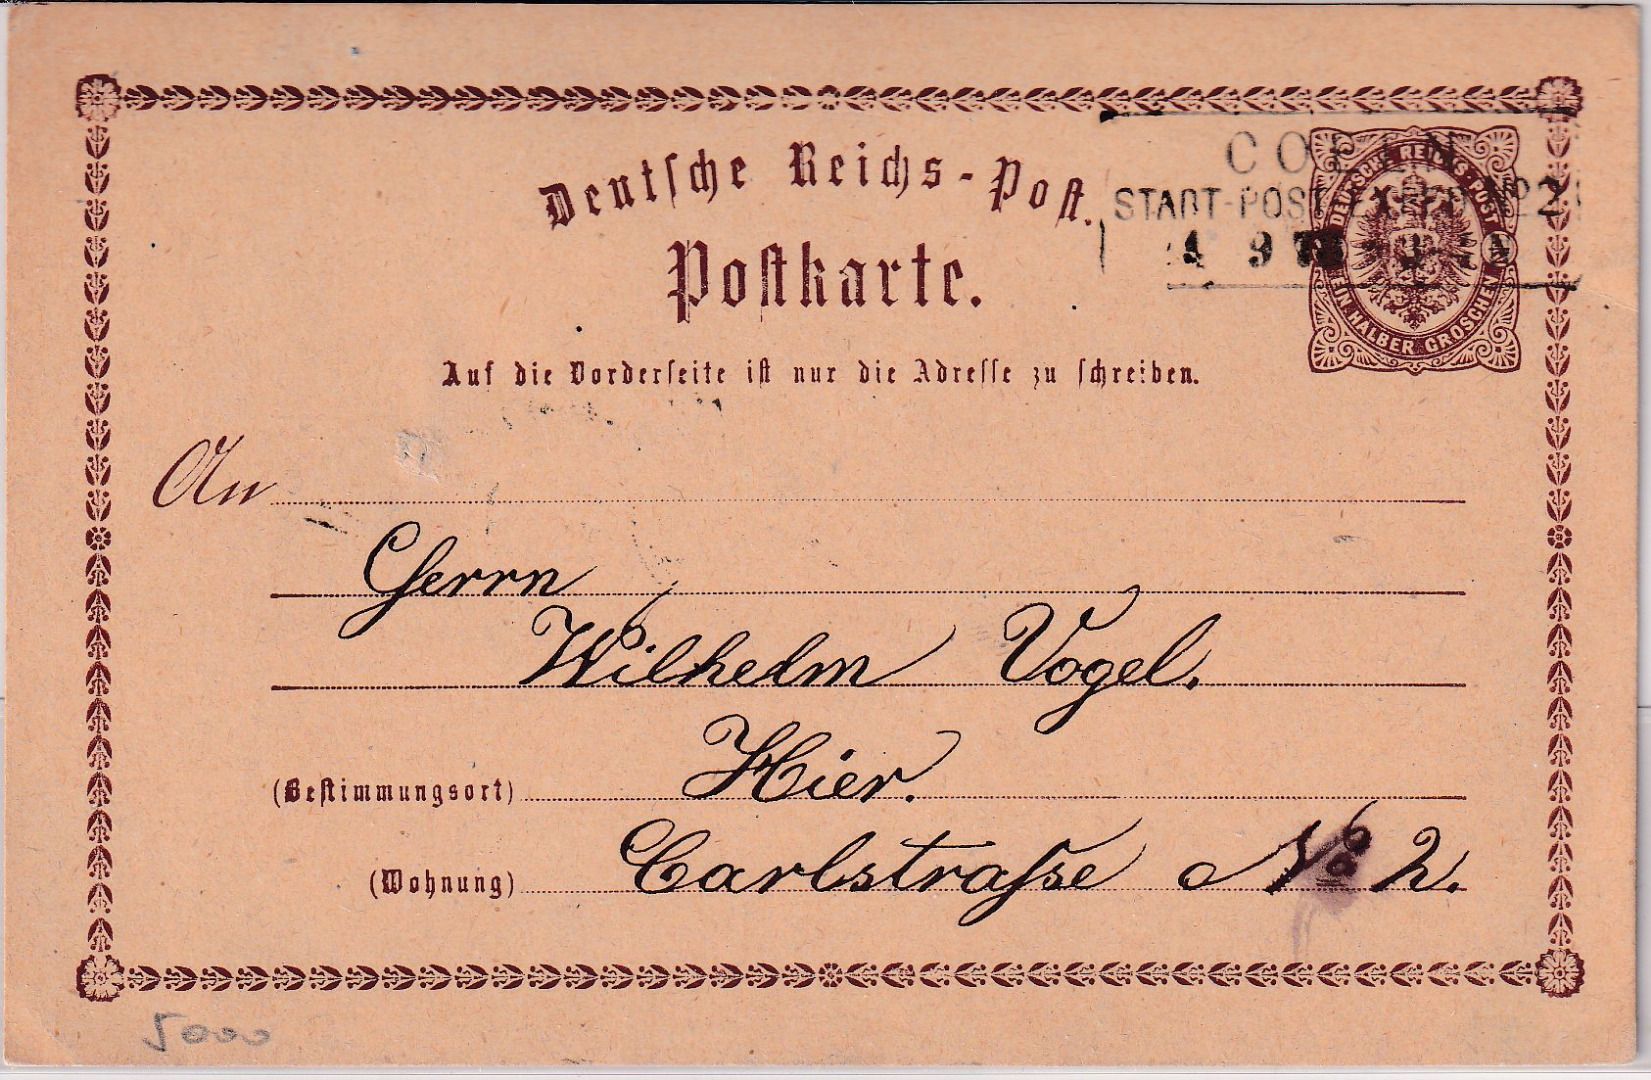 Deutsche Reichs-Post.
Postkarte.
Auf die Vorderseite ist nur die Adresse zu schreiben.
COELN
STADT-POST-EXPED № 2
4 9 7
DEUTSCHE REICHS-POST
EIN HALBER GROSCHEN
An
Herrn
Wilhelm Vogel.
(Bestimmungsort) Hier.
(Wohnung) Carlstraſse No 2.
5000